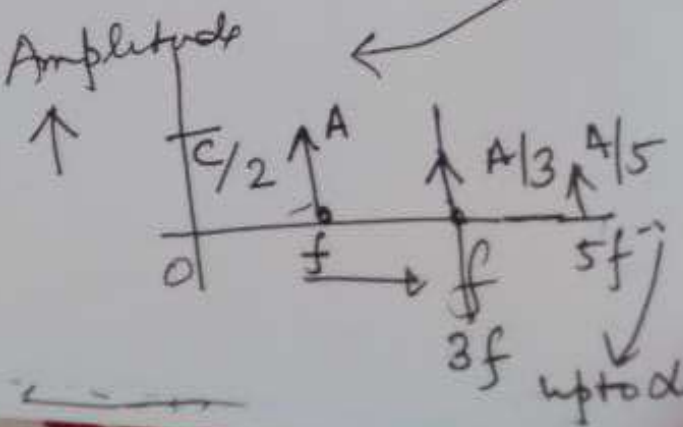 Amplitude
C/2 A A/3 A/5
0 f f 5f
3f
upto α